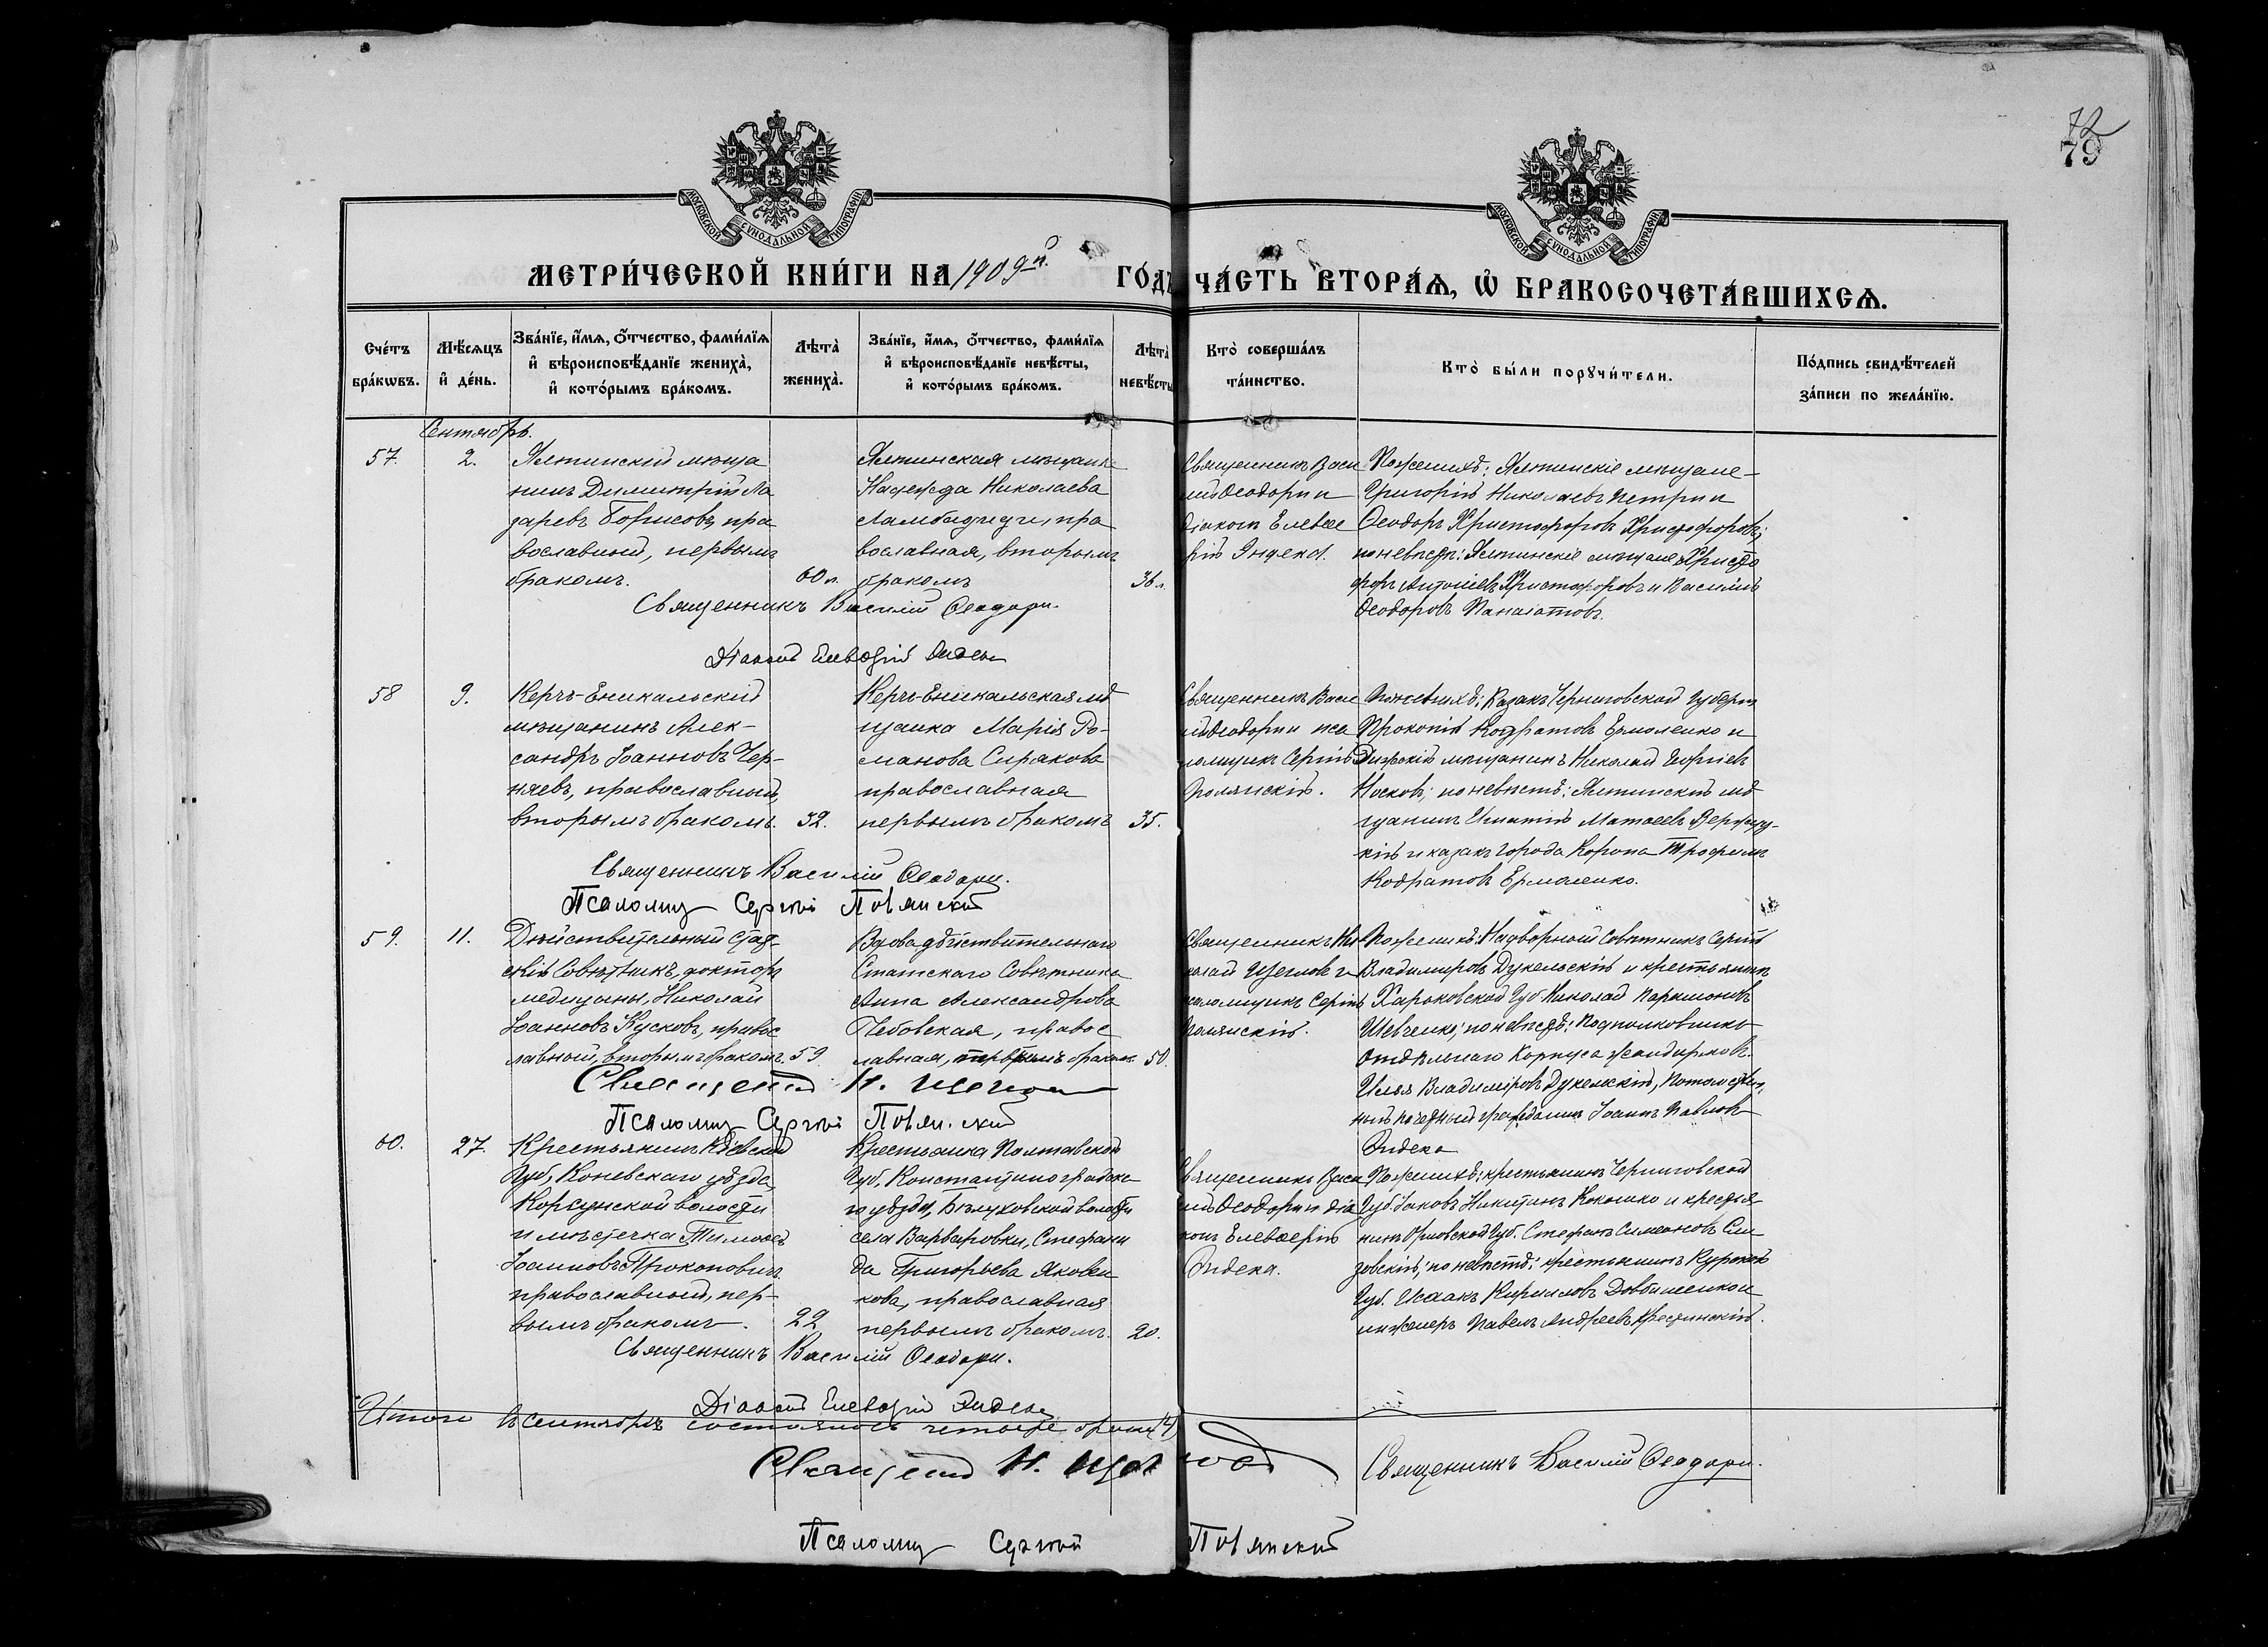 72
79
МОСКОВСКОЙ СѴНОДАЛЬНОЙ ТИПОГРАФІИ
МОСКОВСКОЙ СѴНОДАЛЬНОЙ ТИПОГРАФІИ
МЕТРИ́ЧЕСКОЙ КНИ́ГИ НА 1909й. ГО́ДЪ
ЧА́СТЬ ВТОРА́Ѧ, Ѡ҆ БРАКОСОЧЕТА́ВШИХСѦ.
Сче́тъ бра́кѡвъ.
Мѣ́сяцъ и҆ де́нь.
Зва́нїе, и҆́мѧ, ѻ҆́тчество, фами́лїѧ
и҆ вѣроисповѣ́данїе жениха̀,
и҆ кото́рымъ бра́комъ.
Лѣта̀ жениха̀.
Зва́нїе, и҆́мѧ, ѻ҆́тчество, фами́лїѧ
и҆ вѣроисповѣ́данїе невѣ́сты,
и҆ кото́рымъ бра́комъ.
Лѣта̀ невѣ́сты
Кто̀ соверша́лъ
та́инство.
Кто̀ бы́ли порꙋчи́тели.
По́дпись свидѣ́телей
за́писи по жела́нїю.
Сентябрь.
57.
2.
Ялтинскій мѣща
нинъ Димитрій Ла
заревъ Борисовъ, пра
вославный, первымъ
бракомъ.
60 л.
Ялтинская мѣщанка
Надежда Николаева
Ламбиджеджи, пра
вославная, вторымъ
бракомъ
36 л.
Священникъ Васи
лій Ѳеодори и
діаконъ Елевѳе
рій Эндека.
По женихѣ: Ялтинскіе мѣщане–
Григорій Николаевъ Петри и
Ѳеодоръ Христофоровъ Христофоровъ;
по невѣстѣ: Ялтинскіе мѣщане Христо
форъ Антоніевъ Христофоровъ и Василій
Ѳеодоровъ Панаіотовъ.
Священникъ Василій Ѳеодори.
Діаконъ Елевѳерій Эндека
58
9.
Керчь-Еникальскій
мѣщанинъ Алек-
сандръ Іоанновъ Чер-
няевъ, православный,
вторымъ бракомъ.
32.
Керчь-Еникальская мѣ
щанка Марія Ро-
манова Сиракова
православная
первымъ бракомъ
35.
Священникъ Васи
лій Ѳеодори и пса
ломщикъ Сергій
Полянскій.
По женихѣ: Казакъ Черниговской губерніи
Прокопій Кодратовъ Ермоленко и
мѣщанинъ Николай Георгіевъ
Носковъ; по невѣстѣ: Ялтинскій мѣ
щанинъ Игнатій Матѳеевъ
кій и казакъ города Коропа Трофимъ
Кодратовъ Ермоленко.
Священникъ Василій Ѳеодори.
Псаломщ Сергѣй Полянскій
59.
11.
Дѣйствительный Стат-
скій Совѣтникъ, докторъ
медицины, Николай
Іоанновъ Кусковъ, правос
лавный, вторымъ бракомъ.
59
Вдова дѣйствительнаго
Статскаго Совѣтника
Анна Александрова
Глебовская, правос
лавная, вторымъ бракомъ
50.
Священникъ Ни
колай Щегловъ и
псаломщикъ Сергій
Полянскій.
По женихѣ: Надворный Совѣтникъ Сергій
Владимировъ Дукельскій и крестьянинъ
Харьковской губ. Николай Парѳіоновъ
Шевченко; по невѣстѣ: Подполковникъ
Отдѣльнаго Корпуса жандармовъ
Илья Владиміровъ Дукельскій, потомствен-
ный почетный гражданинъ Іоаннъ Павловъ
Эндека
Священникъ Н. Щегловъ
Псаломщ Сергѣй Полянскій
60.
27.
Крестьянинъ Кіевской
губ., Каневскаго уѣзда,
Корсунской волости
и мѣстечка Тимоѳей
Іоанновъ Прокоповичъ
православный, пер-
вымъ бракомъ.
22
Крестьянка Полтавской
губ., Константиноградска
го уѣзда, Бѣлуховской волости
села Варваровки, Стефани
да Григорьева Яковен
кова, православная
первымъ бракомъ.
20.
Священникъ Васи
лій Ѳеодори и діа
конъ Елевѳерій
Эндека.
По женихѣ: крестьянинъ Черниговской
губ. Іаковъ Никитинъ Кокошко и крестья
нинъ Орловской губ. Стефанъ Симеоновъ Сли
зовскій; по невѣстѣ: крестьянинъ Курской
губ. Исаакъ Кирилловъ Довбишенко и
инженеръ Павелъ Андреевъ Крестинскій.
Священникъ Василій Ѳеодори.
Діаконъ Елевѳерій Эндека
Итого въ сентябрѣ состоялось четыре брака (4)
Священникъ Н. Щегловъ
Священникъ Василій Ѳеодори.
Псаломщ Сергѣй Полянскій